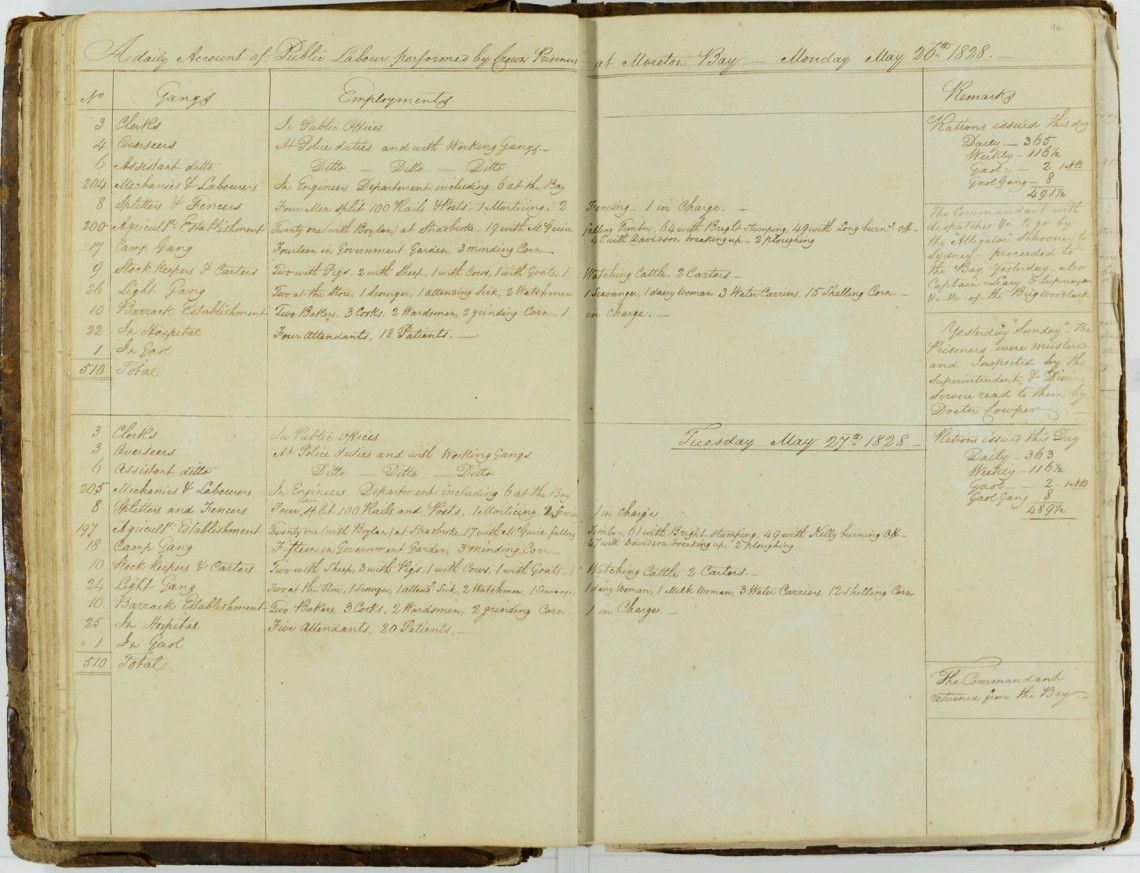 A daily Account of Public Labour performed by Crown Prisoners at Moreton Bay — Monday May 26th 1828. —
No Gangs Employments Remarks
3 Clerks In Public Offices
4 Overseers At Police duties and with Working Gangs —
6 Assistant ditto Ditto — Ditto — Ditto
204 Mechanics & Labourers In Engineers Department including 6 at the Bay
8 Splitters & Fencers Four Men split 100 Rails & Posts, 1 Morticing, 2 Fencing — 1 in Charge. —
200 Agricultl Establishment Twenty one (with Boylan) at Strasbroke, 19 with McGuire falling Timber, 64 with Bright Stumping, 49 with Long burng Off —
45 with Davisson breaking up — 2 ploughing
17 Camp Gang Fourteen in Government Garden, 3 minding Corn —
9 Stock keepers & Carters Two with Pigs, 2 with Sheep, 1 with Cows, 1 with Goats, 1 Watching Cattle, 2 Carters —
26 Light Gang Two at the Store, 1 Scourger, 1 attending Sick, 2 Watchmen 1 Scavanger, 1 dairy Woman 3 Water Carriers, 15 Shelling Corn —
10 Barrack Establishment Two Bakers, 3 Cooks, 2 Wardsmen, 2 grinding Corn — 1 in Charge. —
22 In Hospital Four Attendants, 18 Patients. —
1 In Gaol
510 Total
Rations issued this day
Daily — 365
Weekly — 116½
Gaol — 2 1 Abt
Gaol Gang — 8
491½
The Commandant with
dispatches to go by
the Alligator Schooner to
Sydney — proceeded to
the Bay Yesterday — also
Captain Leary &
of the Brig Woodlark
Yesterday "Sunday" the
Prisoners were mustered
and Inspected by the
Superintendent, & Divine
Service read to them by
Doctor Cowper —
Tuesday May 27th 1828 —
3 Clerks In Public Offices
3 Overseers At Police duties and with Working Gangs
6 Assistant ditto Ditto — Ditto — Ditto
205 Mechanics & Labourers In Engineers Department including 6 at the Bay
8 Splitters and Fencers Four split 100 Rails and Posts, 1 Morticing 2 1 in Charge
197 Agricultl Establishment Twenty one (with Boylan) at Strasbroke, 17 with McGuire falling Timber, 61 with Bright Stumping, 49 with Kelly burning Off —
47 with Davisson breaking up, 2 ploughing
18 Camp Gang Fifteen in Government Garden, 3 minding Corn —
10 Stock keepers & Carters Two with Sheep, 3 with Pigs, 1 with Cows, 1 with Goats, 1 Watching Cattle 2 Carters —
24 Light Gang Two at the Store, 1 Scourger, 1 attendg Sick, 2 Watchmen, 1 Scavanger 1 dairy Woman, 1 Milk Woman, 3 Water Carriers, 12 Shelling Corn
10 Barrack Establishment Two Bakers, 3 Cooks, 2 Wardsmen, 2 grinding Corn 1 in Charge —
25 In Hospital Five Attendants, 20 Patients. —
1 In Gaol
510 Total
Rations issued this Day
Daily — 363
Weekly — 116½
Gaol — 2 — 1 Abt
Gaol Gang 8
489½
The Commandant
returned from the Bay —